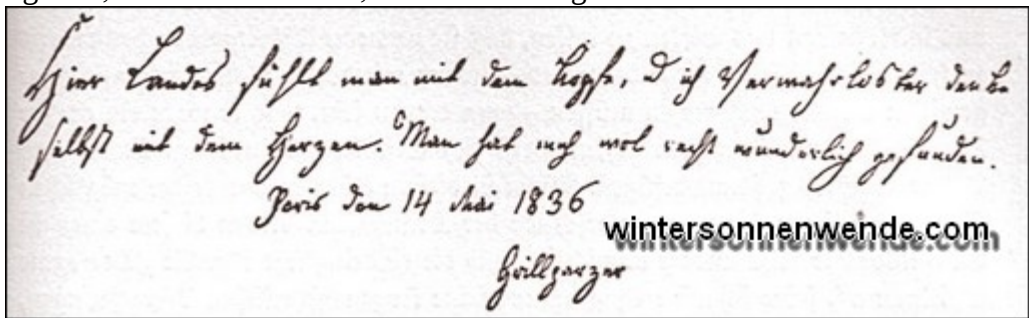 Hier Landes fühlt man mit dem Kopfe, ich Verwahrloster denke
selbst mit dem Herzen. Man hat mich wol recht wunderlich gefunden.
Paris den 14 Mai 1836
wintersonnenwende.com
Grillparzer